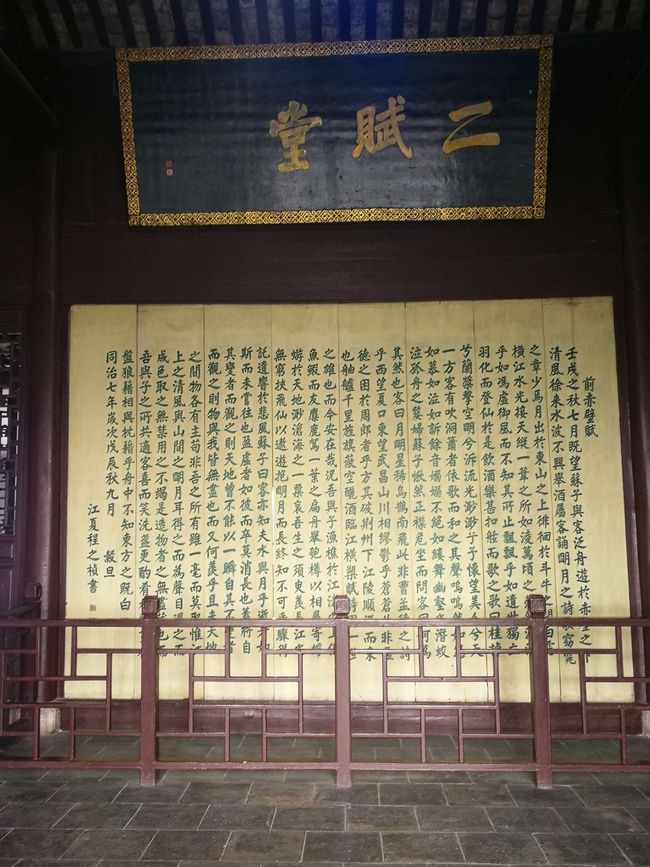 二賦堂
前赤壁賦
壬戌之秋七月既望蘇子與客泛舟遊於赤壁之下
清風徐來水波不興舉酒屬客誦明月之詩歌窈窕
之章少焉月出於東山之上徘徊於斗牛之間白露
橫江水光接天縱一葦之所如淩萬頃之茫然
乎如馮虛御風而不知其所止飄飄乎如遺世獨立
羽化而登仙於是飲酒樂甚扣舷而歌之歌曰桂棹
兮蘭槳擊空明兮泝流光渺渺兮予懷望美人兮天
一方客有吹洞簫者依歌而和之其聲嗚嗚然如怨
如慕如泣如訴餘音嫋嫋不絕如縷舞幽壑之潛蛟
泣孤舟之嫠婦蘇子愀然正襟危坐而問客曰何為
其然也客曰月明星稀烏鵲南飛此非曹孟德之詩
乎西望夏口東望武昌山川相繆鬱乎蒼蒼此非孟
德之困於周郎者乎方其破荊州下江陵順流而東
也舳艫千里旌旗蔽空釃酒臨江橫槊賦詩固一世
之雄也而今安在哉況吾與子漁樵於江渚上侶
魚鰕而友麋鹿駕一葉之扁舟舉匏樽以相屬寄蜉
蝣於天地渺滄海之一粟哀吾生之須臾羨長江之
無窮挾飛仙以遨遊抱明月而長終知不可乎驟得
託遺響於悲風蘇子曰客亦知夫水與月乎逝者如
斯而未嘗往也盈虛者如彼而卒莫消長也蓋將自
其變者而觀之則天地曾不能以一瞬自其不變者
而觀之則物與我皆無盡也而又何羨乎且夫天地
之間物各有主苟非吾之所有雖一毫而莫取惟江
上之清風與山間之明月耳得之而為聲目遇之而
成色取之無禁用之不竭是造物者之無盡藏也而
吾與子之所共適客喜而笑洗盞更酌肴
盤狼藉相與枕藉乎舟中不知東方之既白
同治七年歲次戊辰秋九月 穀旦
江夏程之楨書